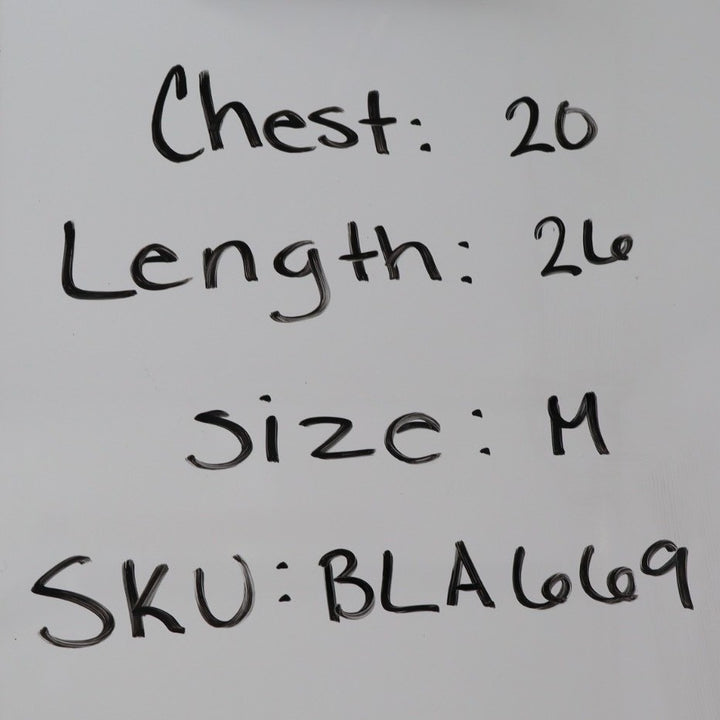 Chest: 20
Length: 26
Size: M
SKU: BLA669